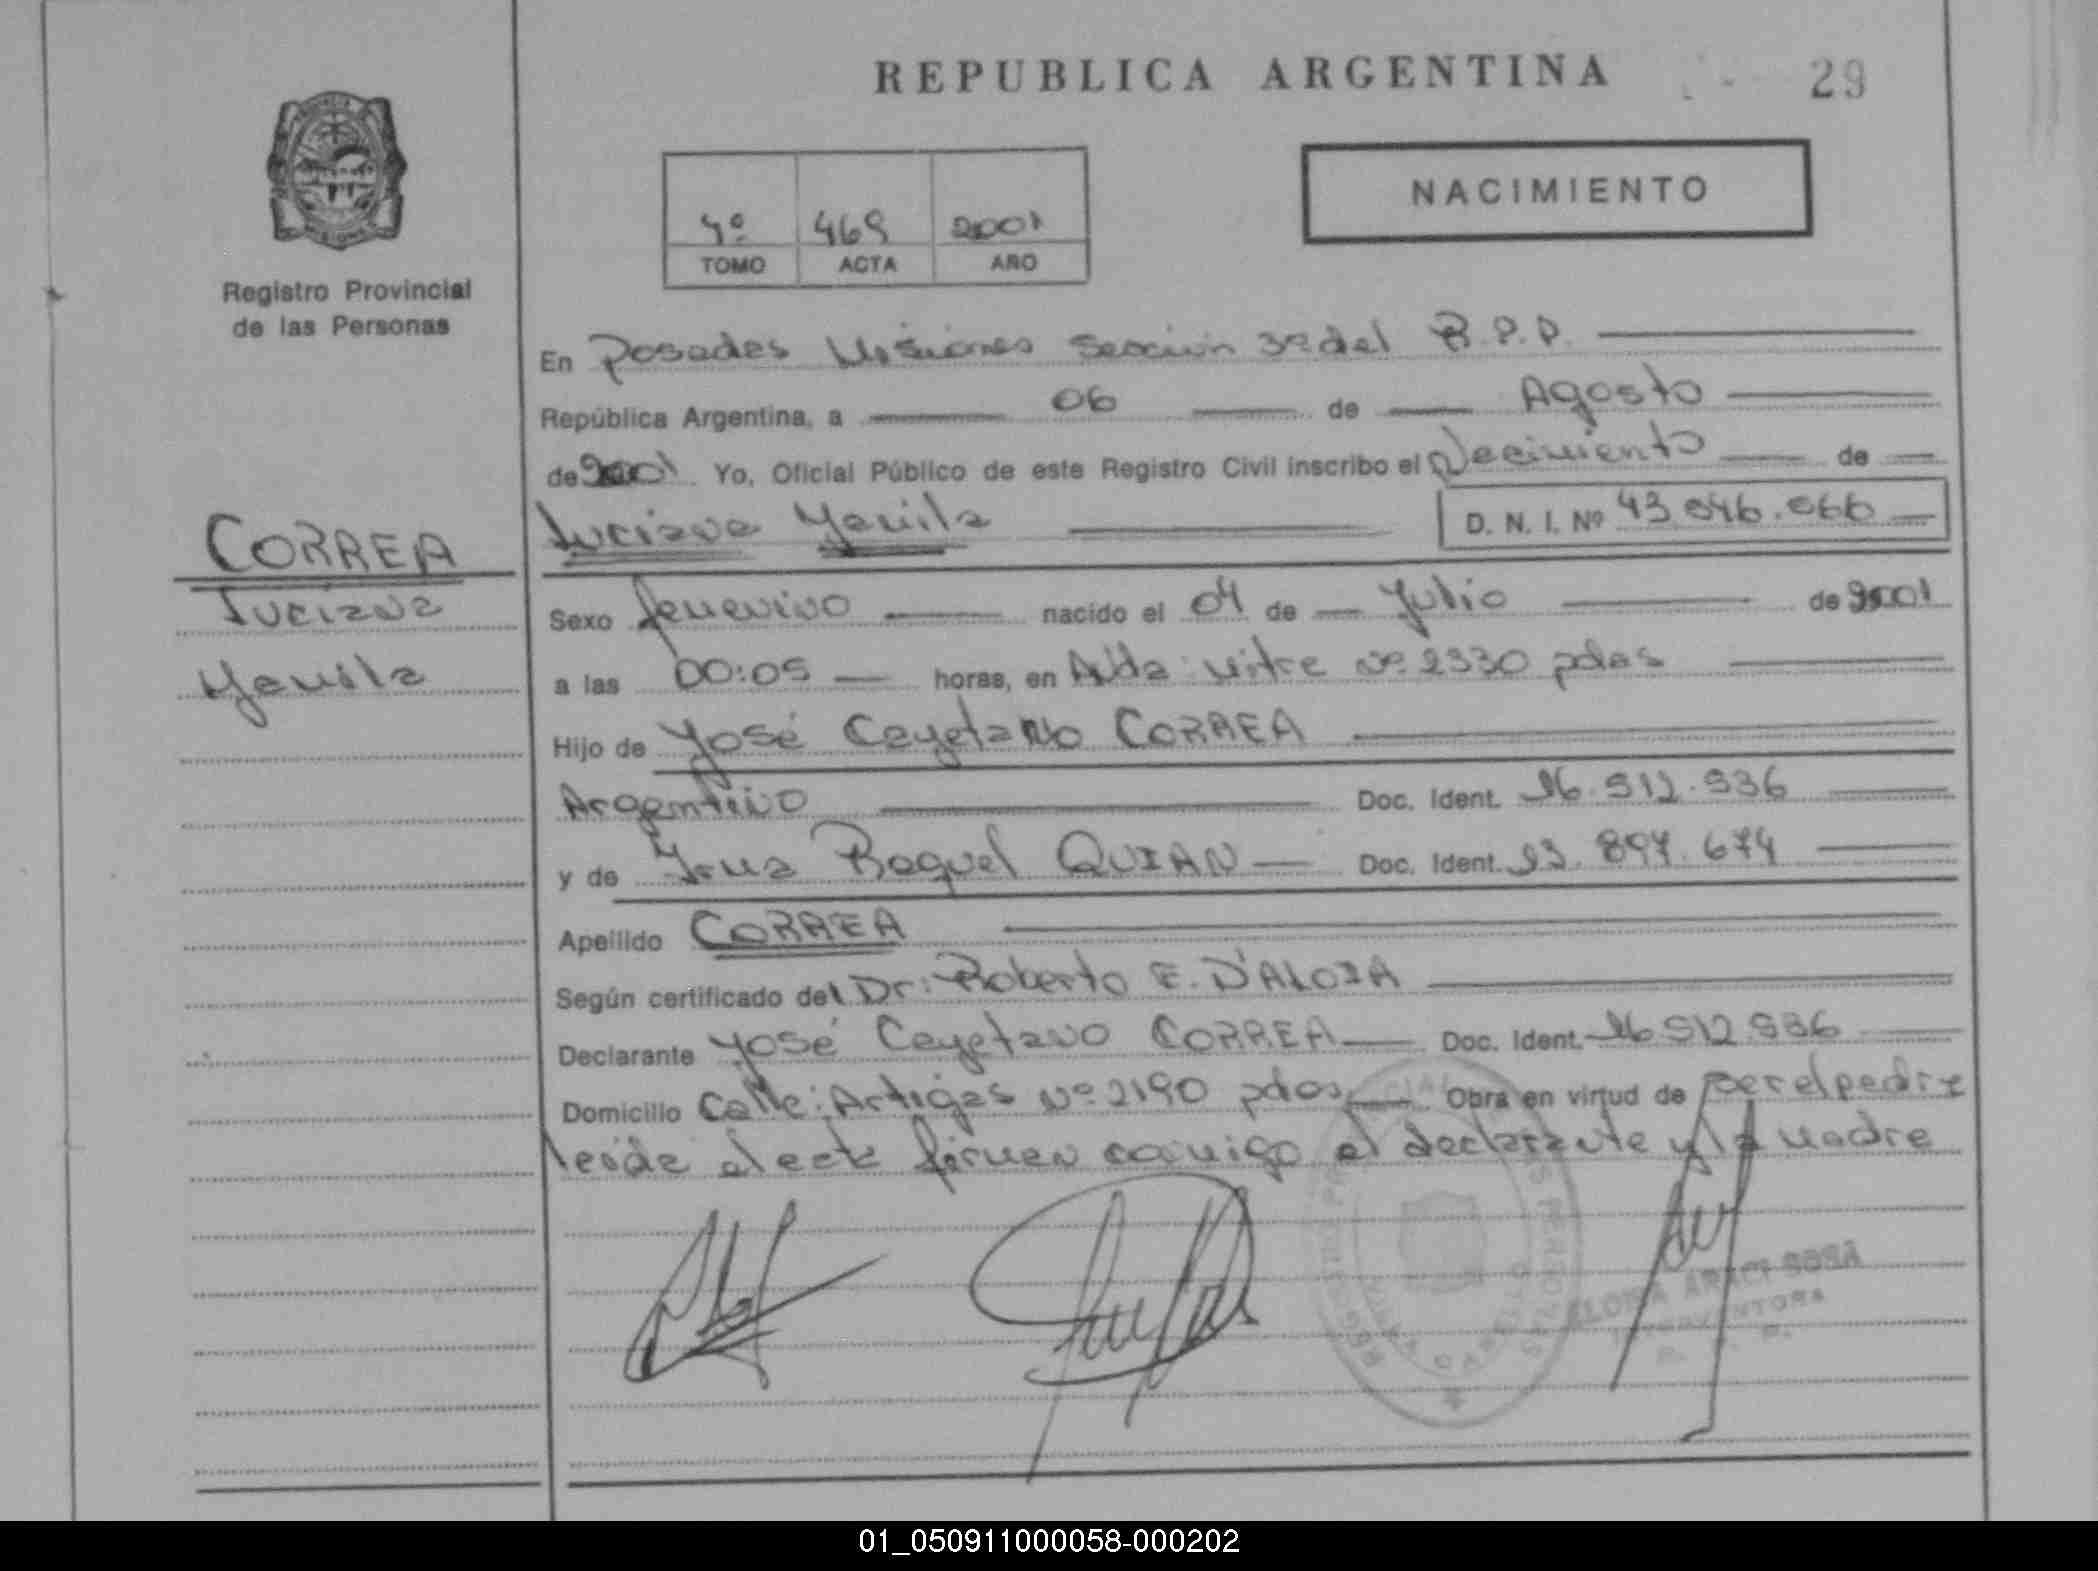 REPUBLICA ARGENTINA
29
NACIMIENTO
4º 469 2001
TOMO ACTA AÑO
Registro Provincial
de las Personas
En Posadas Misiones Sección 3ª del R.P.P.
República Argentina, a 06 de Agosto
de 2001 Yo, Oficial Público de este Registro Civil inscribo el Nacimiento de
Luciana Yamila D. N. I. Nº
CORREA
Luciana
Yamila
Sexo femenino nacido el 04 de Julio de 2001
a las 00:05 horas, en Avda: Mitre Nº 2330 pdas
Hijo de José Cayetano CORREA
Argentino Doc. Ident. 16.912.936
y de Irma Raquel QUIAN Doc. Ident.
Apellido CORREA
Según certificado del Dr: Roberto E. D'ALOIA
Declarante José Cayetano CORREA Doc. Ident. 16.912.936
Domicilio Calle: Artigas Nº 2190 pdas Obra en virtud de ser el padre
leída el acta firman conmigo el declarante y la madre
01_050911000058-000202